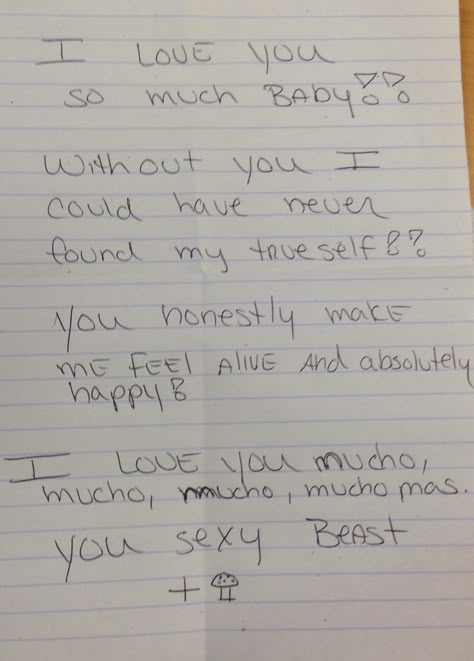 I LOVE you
so much BABy!!
Without you I
could have never
found my trueself!!
you honestly make
mE FEEl AlIVE And absolutely
happy!
I LOVE you mucho,
mucho, mucho, mucho mas.
you sexy BEAst
+